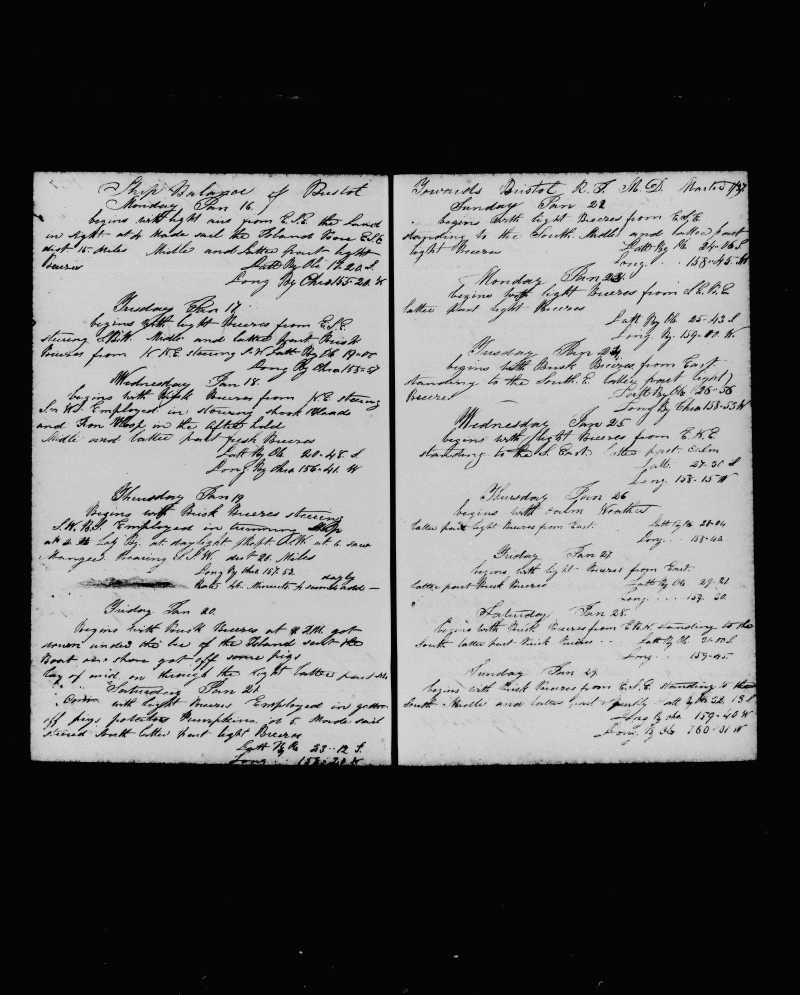 Ship Balance of Bristol
Monday Jan 16.
begins with light airs from E.S.E. the land
in sight at 4 Made sail the Island bore E.S.E
dist 15 Miles Midle and latter part light
Breeses Latt By Ob 18-20 S.
Long By Chro 155-20. W
Tuesday Jan 17.
begins with light Breeses from E.S.E.
stering Midle and latter part Brisk
Breeses from N.N.E stering S.W. Latt By Ob 19-00
Long By Chro 153-
Wednesday Jan 18.
begins with Brisk Breeses from N.E stering
S.W. Employed in stowing shook
and Iron Hoop in the After hold
Midle and latter part fresh Breeses
Latt By Ob 20-48. S
Long By Chro 156-41. W
Thursday Jan 19
Begins with Brisk Breeses stering
S.W.B.S. Employed in trimming Ship
at 4 Lay By. at daylight Kept O.W. at 6 saw
Mangea bearing S.S.W. dist 20. Miles
Long By Chro 157.52.
day by
Rate 46. Minuets
Friday Jan 20.
begins with Brisk Breeses at 2 P.M. got
down under the lee of the Island sent the
Boat on shore got off some pigs
lay of and on through the Night latter part
Saturday Jan 21
with light Breeses Employed in getting
off pigs potatoes Pumpkins at 5 Made sail
stered South latter part light Breeses
Latt By Ob 23-12 S.
Long 158-20 W
Towards Bristol R. T. McD. Master 1/37
Sunday Jan 22
begins with light Breeses from E.S.E
standing to the South Midle and latter part
light Breeses Latt By Ob 24-06 S
Long. 158-45 W
Monday Jan 23.
begins with light Breeses from
latter part light Breeses
Latt By Ob 25-43 S
Long. By. 159-00 W.
Tuesday Jan 24
begins with Brisk Breeses from East
standing to the South.E latter part light
Breeses Latt By Ob 26-56
Long By Chro 158-53 W
Wednesday Jan 25
begins with light Breeses from E.N.E
standing to the S East latter part Calm
Latt. 27-30 S
Long. 158-15 W
Thursday Jan 26
begins with Calm Weather
latter part light Breeses from East. Latt By Ob 28-04
Long. 158-40
Friday Jan 27.
begins with light Breeses from East.
latter part Brisk Breeses Latt By Ob 29-21
Long. 159. 30.
Saturday Jan 28.
begins with Brisk Breeses from E.N.N, standing to the
South latter part Brisk Breeses Latt By Ob 31-10 S
Long 159-45
Sunday Jan 29.
begins with Brisk Breeses from E.S.E. standing to the
South Midle and latter part 13 S
Long By Chro 159-40 W
Long. By 160-31 W